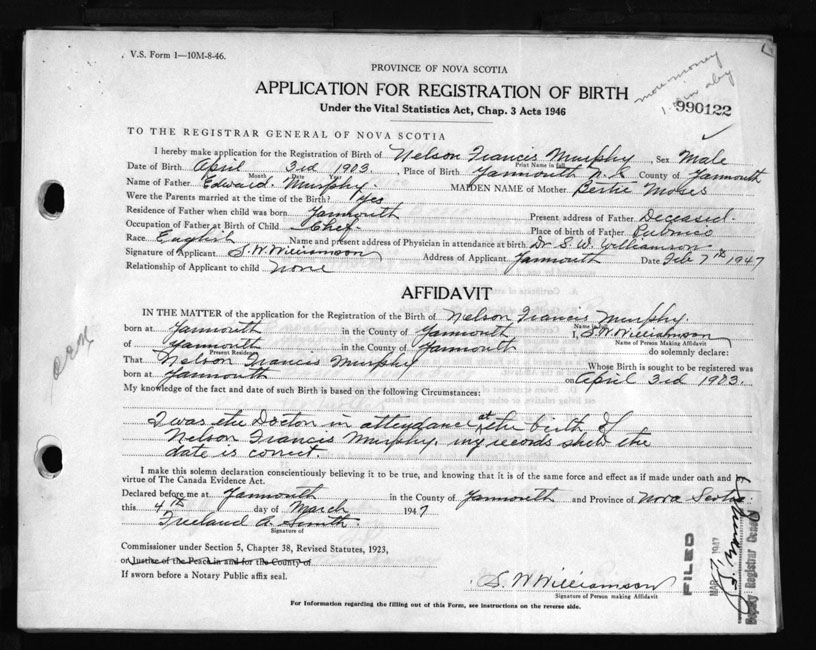 V.S. Form 1—10M-8-46.
PROVINCE OF NOVA SCOTIA
APPLICATION FOR REGISTRATION OF BIRTH
Under the Vital Statistics Act, Chap. 3 Acts 1946
more money
990122
TO THE REGISTRAR GENERAL OF NOVA SCOTIA
I hereby make application for the Registration of Birth of Nelson Francis Murphy, Sex Male
Print Name in full
Date of Birth April 3rd 1903, Place of Birth Yarmouth N.S. County of Yarmouth
Month Date Year
Name of Father Edward Murphy. MAIDEN NAME of Mother Bertie Moses
Were the Parents married at the time of the Birth? Yes
Residence of Father when child was born Yarmouth Present address of Father Deceased.
Occupation of Father at Birth of Child Chef. Place of birth of Father Pubnico
Race English Name and present address of Physician in attendance at birth Dr S. W. Williamson
Signature of Applicant S. W. Williamson Address of Applicant Yarmouth Date Feb 7th 1947
Relationship of Applicant to child None
AFFIDAVIT
IN THE MATTER of the application for the Registration of the Birth of Nelson Francis Murphy.
Name in full
born at Yarmouth in the County of Yarmouth I, S. W. Williamson
Name of Person Making Affidavit
of Yarmouth in the County of Yarmouth do solemnly declare:
Present Residence
That Nelson Francis Murphy Whose Birth is sought to be registered was
born at Yarmouth on April 3rd 1903.
My knowledge of the fact and date of such Birth is based on the following Circumstances:
I was the Doctor in attendance at the birth of
Nelson Francis Murphy, my records show the
date is correct.
I make this solemn declaration conscientiously believing it to be true, and knowing that it is of the same force and effect as if made under oath and by
virtue of The Canada Evidence Act.
Declared before me at Yarmouth in the County of Yarmouth and Province of Nova Scotia.
this 4th day of March 1947
Freeland A. Smith.
Signature of
Commissioner under Section 5, Chapter 38, Revised Statutes, 1923,
or Justice of the Peace in and for the County of
If sworn before a Notary Public affix seal.
S. W Williamson
Signature of Person making Affidavit
For Information regarding the filling out of this Form, see instructions on the reverse side.
FILED
MAR 1947
Deputy Registrar General